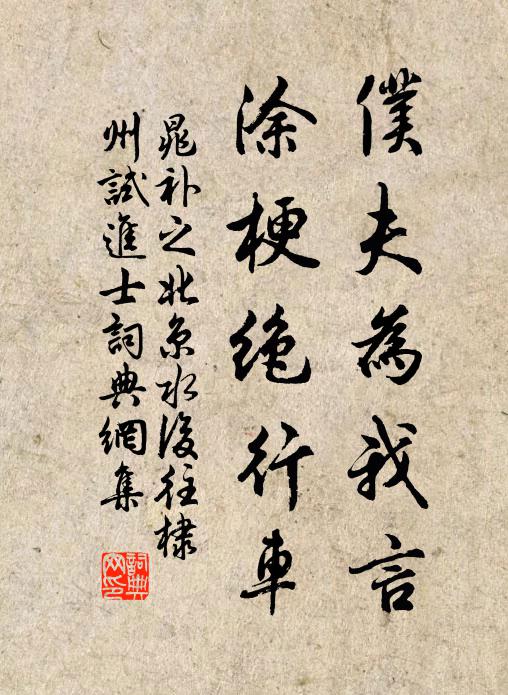 僕夫為我言
涂梗绝行車
晁补之北京水後往棣
州試進士詞典網集
詞典
网印